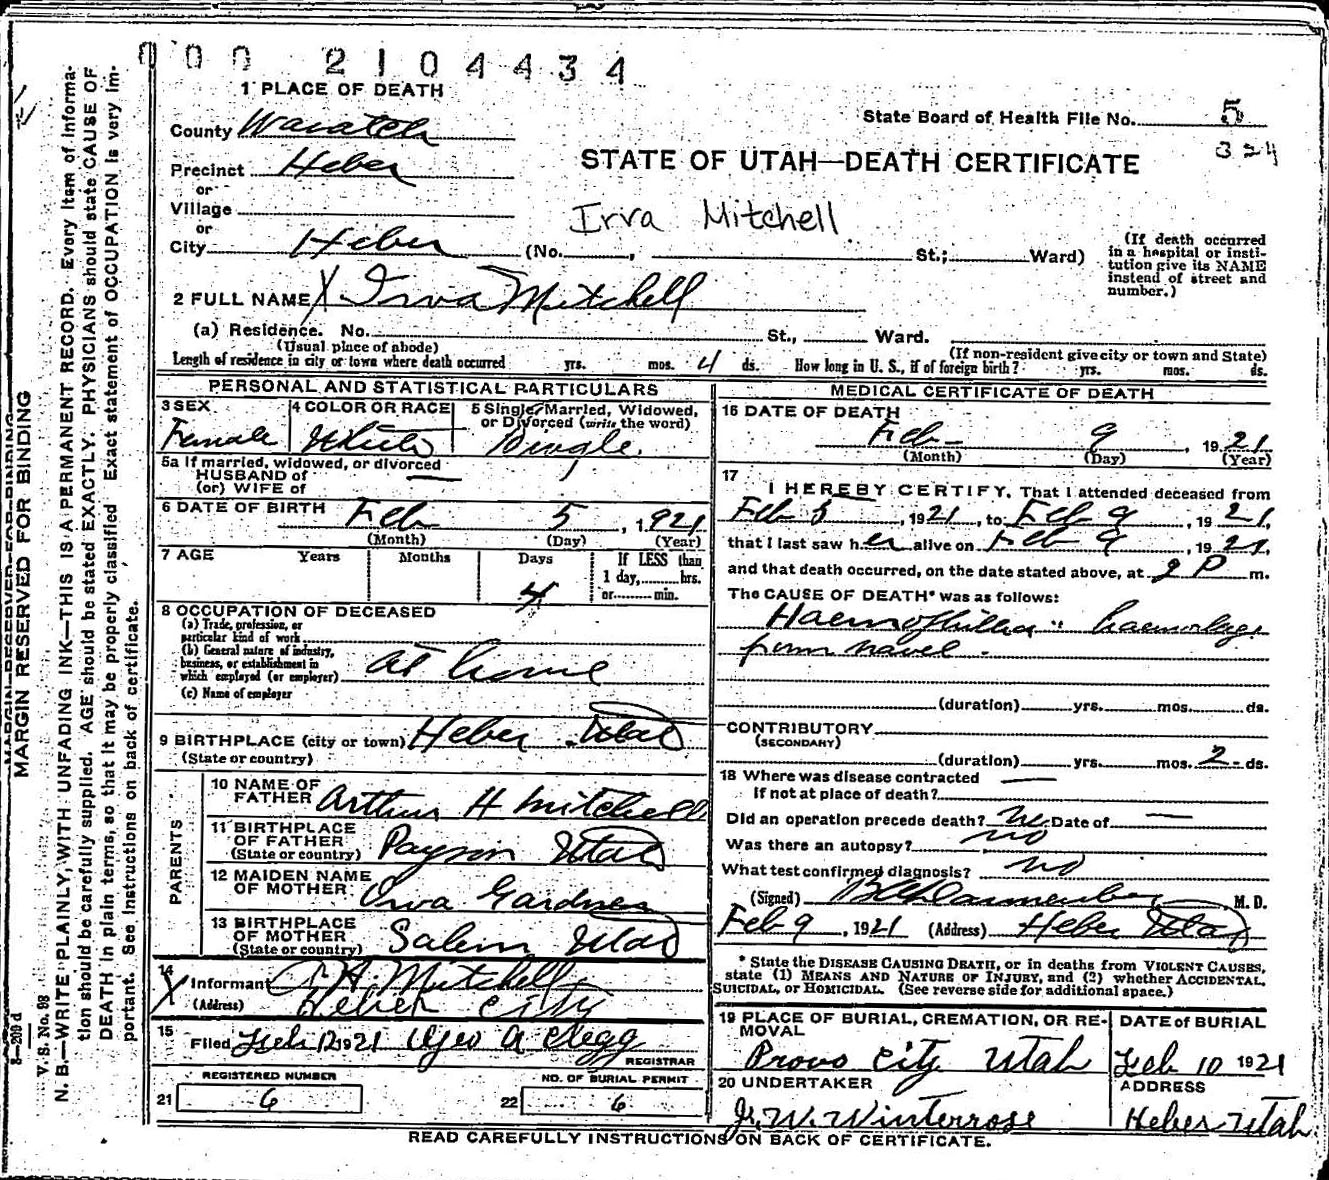 000 2104434
1 PLACE OF DEATH
State Board of Health File No. 5
324
County Wasatch
STATE OF UTAH—DEATH CERTIFICATE
Precinct Heber
or
Village
or
Irva Mitchell
City Heber (No. , St.; Ward)
(If death occurred in a hospital or institution give its NAME instead of street and number.)
2 FULL NAME X Irva Mitchell
(a) Residence. No. St., Ward.
(Usual place of abode) (If non-resident give city or town and State)
Length of residence in city or town where death occurred yrs. mos. 4 ds. How long in U. S., if of foreign birth? yrs. mos. ds.
PERSONAL AND STATISTICAL PARTICULARS
3 SEX 4 COLOR OR RACE 5 Single, Married, Widowed, or Divorced (write the word)
Female White Single
5a If married, widowed, or divorced
HUSBAND of —
(or) WIFE of
6 DATE OF BIRTH Feb 5, 1921
(Month) (Day) (Year)
7 AGE Years Months Days If LESS than
1 day, hrs.
or min.
4
8 OCCUPATION OF DECEASED
(a) Trade, profession, or
particular kind of work
(b) General nature of industry,
business, or establishment in
which employed (or employer) at home
(c) Name of employer
9 BIRTHPLACE (city or town) Heber Utah
(State or country)
PARENTS
10 NAME OF
FATHER Arthur H Mitchell
11 BIRTHPLACE
OF FATHER Payson Utah
(State or country)
12 MAIDEN NAME
OF MOTHER Irva Gardner
13 BIRTHPLACE
OF MOTHER Salem Utah
(State or country)
14
X Informant A H Mitchell
(Address) Heber City
15
Filed Feb 12 1921 Geo A Clegg
REGISTRAR
REGISTERED NUMBER NO. OF BURIAL PERMIT
21 6 22 6
MEDICAL CERTIFICATE OF DEATH
16 DATE OF DEATH
Feb 9, 1921
(Month) (Day) (Year)
17
I HEREBY CERTIFY, That I attended deceased from
Feb 5, 1921, to Feb 9, 1921,
that I last saw her alive on Feb 9, 1921,
and that death occurred, on the date stated above, at 2 P m.
The CAUSE OF DEATH* was as follows:
Haemophilia haemorhage
from navel.
(duration) yrs. mos. ds.
CONTRIBUTORY
(SECONDARY)
(duration) yrs. mos. 2 ds.
18 Where was disease contracted —
If not at place of death?
Did an operation precede death? no Date of —
Was there an autopsy? no
What test confirmed diagnosis? no
(Signed) M. D.
Feb 9, 1921 (Address) Heber Utah
* State the DISEASE CAUSING DEATH, or in deaths from VIOLENT CAUSES,
state (1) MEANS AND NATURE OF INJURY, and (2) whether ACCIDENTAL,
SUICIDAL, or HOMICIDAL. (See reverse side for additional space.)
19 PLACE OF BURIAL, CREMATION, OR REMOVAL DATE of BURIAL
Provo City Utah Feb 10 1921
20 UNDERTAKER ADDRESS
J. W. Winterrose Heber Utah
READ CAREFULLY INSTRUCTIONS ON BACK OF CERTIFICATE.
MARGIN RESERVED FOR BINDING
8—200 d
V. S. No. 98
N. B.—WRITE PLAINLY, WITH UNFADING INK—THIS IS A PERMANENT RECORD. Every item of informa-
tion should be carefully supplied. AGE should be stated EXACTLY. PHYSICIANS should state CAUSE OF
DEATH in plain terms, so that it may be properly classified. Exact statement of OCCUPATION is very im-
portant. See instructions on back of certificate.